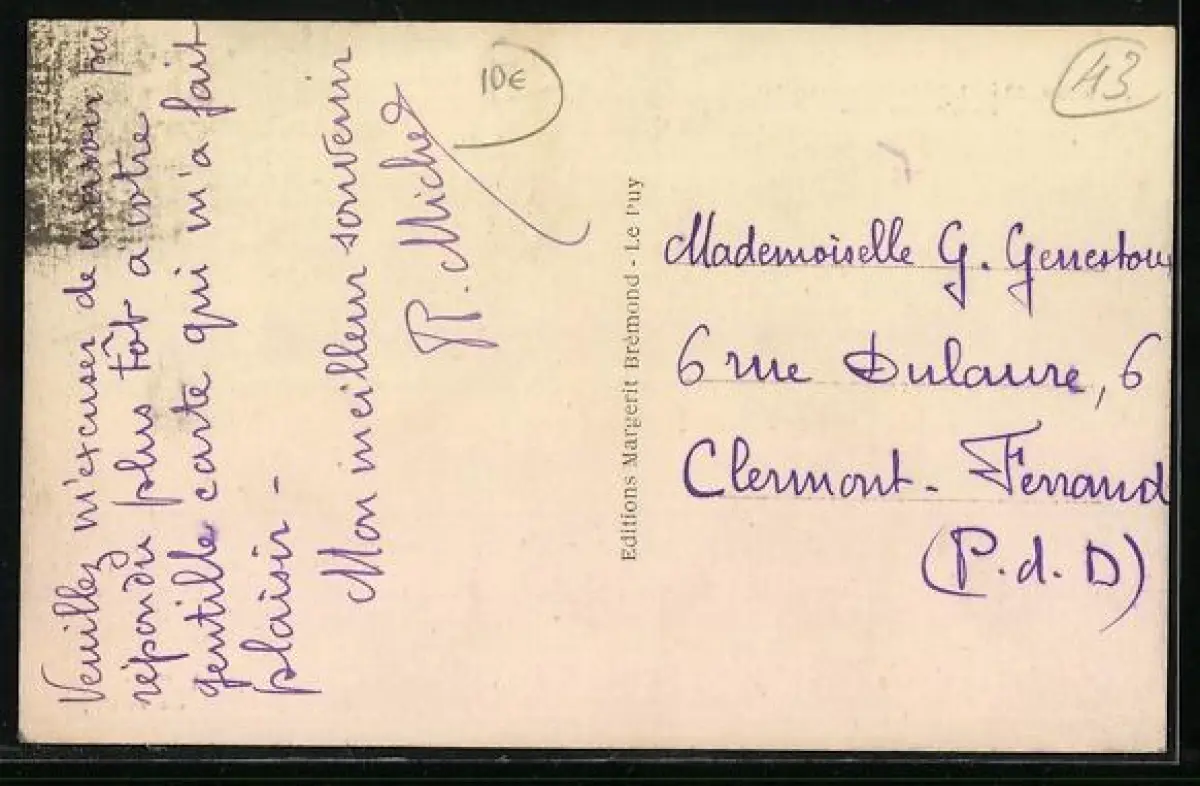 Veuillez m'excuser de n'avoir pas
répondu plus tôt à votre
gentille carte qui m'a fait
plaisir -
Mon meilleur souvenir
P. Michel
10€
Editions Margerit Brémond - Le Puy
43
Mademoiselle G. Genestoux
6 rue Dulaure, 6
Clermont-Ferrand
(P.d.D)